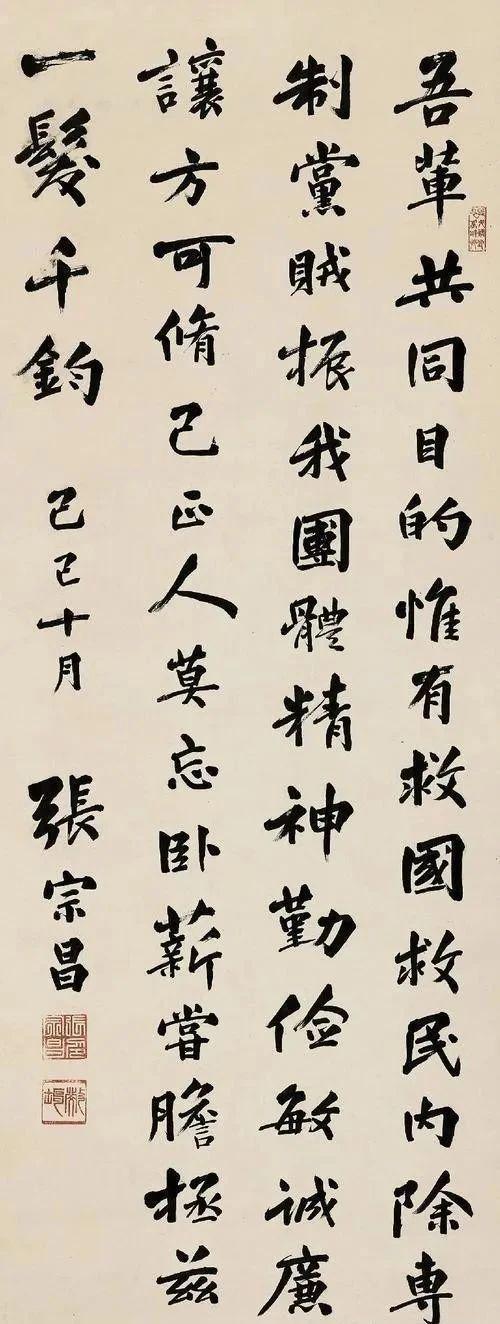 吾輩共同目的惟有救國救民內除專
制黨賊振我團體精神勤儉敏誠廉
讓方可脩己正人莫忘卧薪嘗膽拯茲
一髮千鈞
己巳十月
張宗昌